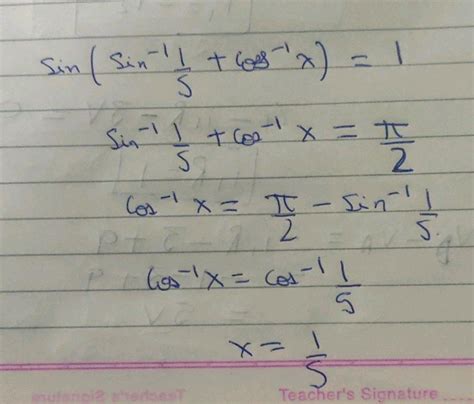 sin(sin⁻¹ 1/5 + cos⁻¹ x) = 1
sin⁻¹ 1/5 + cos⁻¹ x = π/2
cos⁻¹ x = π/2 - sin⁻¹ 1/5
cos⁻¹ x = cos⁻¹ 1/5
x = 1/5
Teacher's Signature